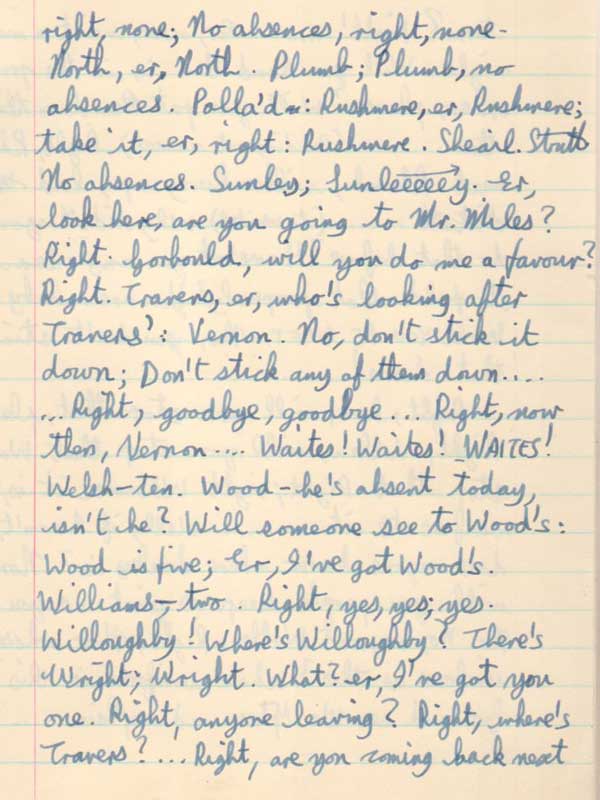 right, none; No absences, right, none-
North, er, North. Plumb; Plumb, no
absences. Polla'd-: Rushmere, er, Rushmere;
take it, er, right: Rushmere. Shearl. Strutt
No absences. Sunley; Sunleeeeey. Er,
look here, are you going to Mr. Miles?
Right. Gorbould, will you do me a favour?
Right. Travers, er, who's looking after
Travers': Vernon. No, don't stick it
down; Don't stick any of them down....
...Right, goodbye, goodbye... Right, now
then, Vernon.... Waites! Waites! WAITES!
Welsh-ten. Wood-he's absent today,
isn't he? Will someone see to Wood's:
Wood is five; Er, I've got Wood's.
Williams-, two Right, yes, yes; yes.
Willoughby! Where's Willoughby? There's
Wright; Wright. What? er, I've got you
one. Right, anyone leaving? Right, where's
Travers?... Right, are you coming back next